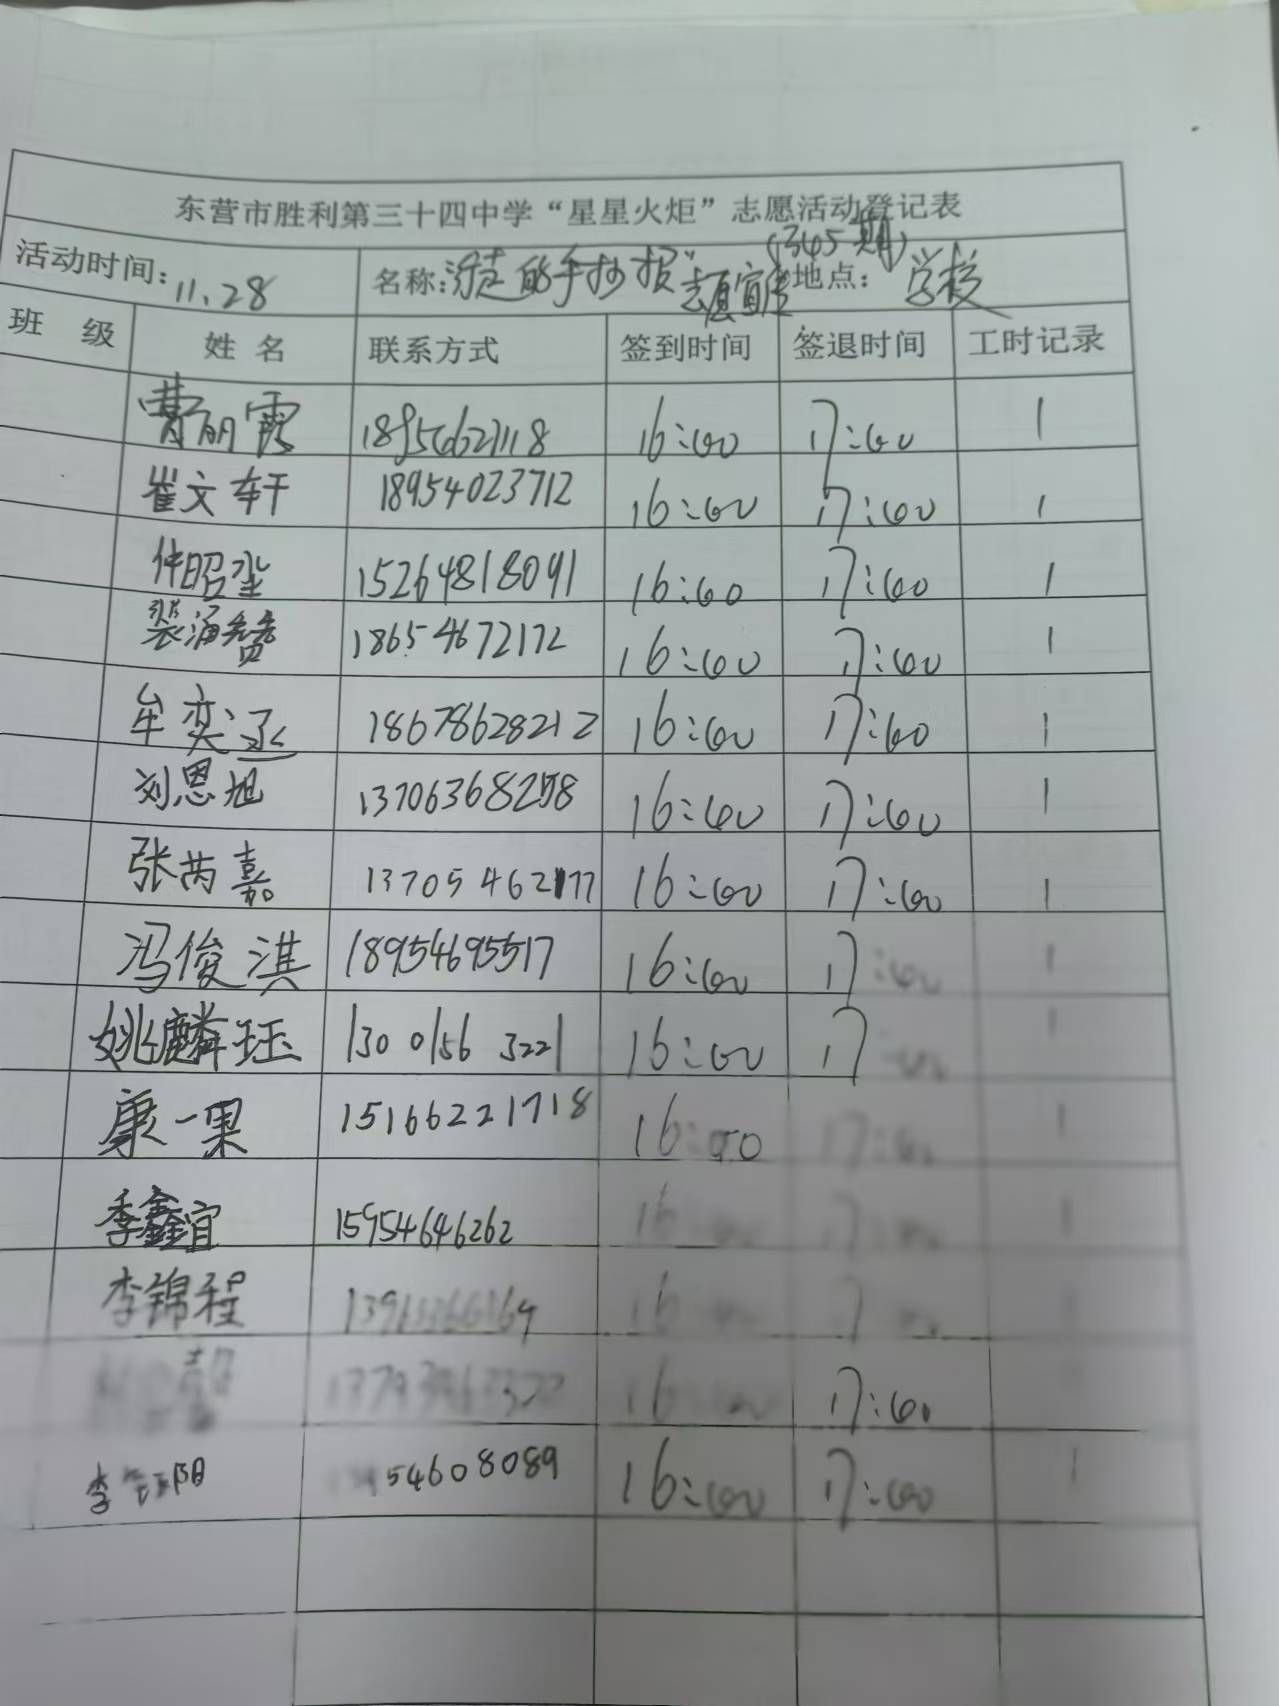 东营市胜利第三十四中学“星星火炬”志愿活动登记表
活动时间：11.28 名称：手抄报 志愿宣传（345期） 地点：学校
班 级 姓 名 联系方式 签到时间 签退时间 工时记录
曹丽霞 16:00 17:00 1
崔文轩 18954023712 16:00 17:00 1
仲昭 15264818091 16:00 17:00 1
裴涵赟 18654672172 16:00 17:00 1
牟奕丞 18678628212 16:00 17:00 1
刘恩旭 16:00 17:00 1
张芮嘉 13705462177 16:00 17:00 1
冯俊淇 18954695517 16:00 17:00 1
姚麟珏 130 0156 3221 16:00 17 1
康一果 15166221718 16:00 17:00 1
季鑫宜 15954646262 16 17 1
李锦程 16 17
16 17:00
李 阳 54608089 16:00 17:00 1